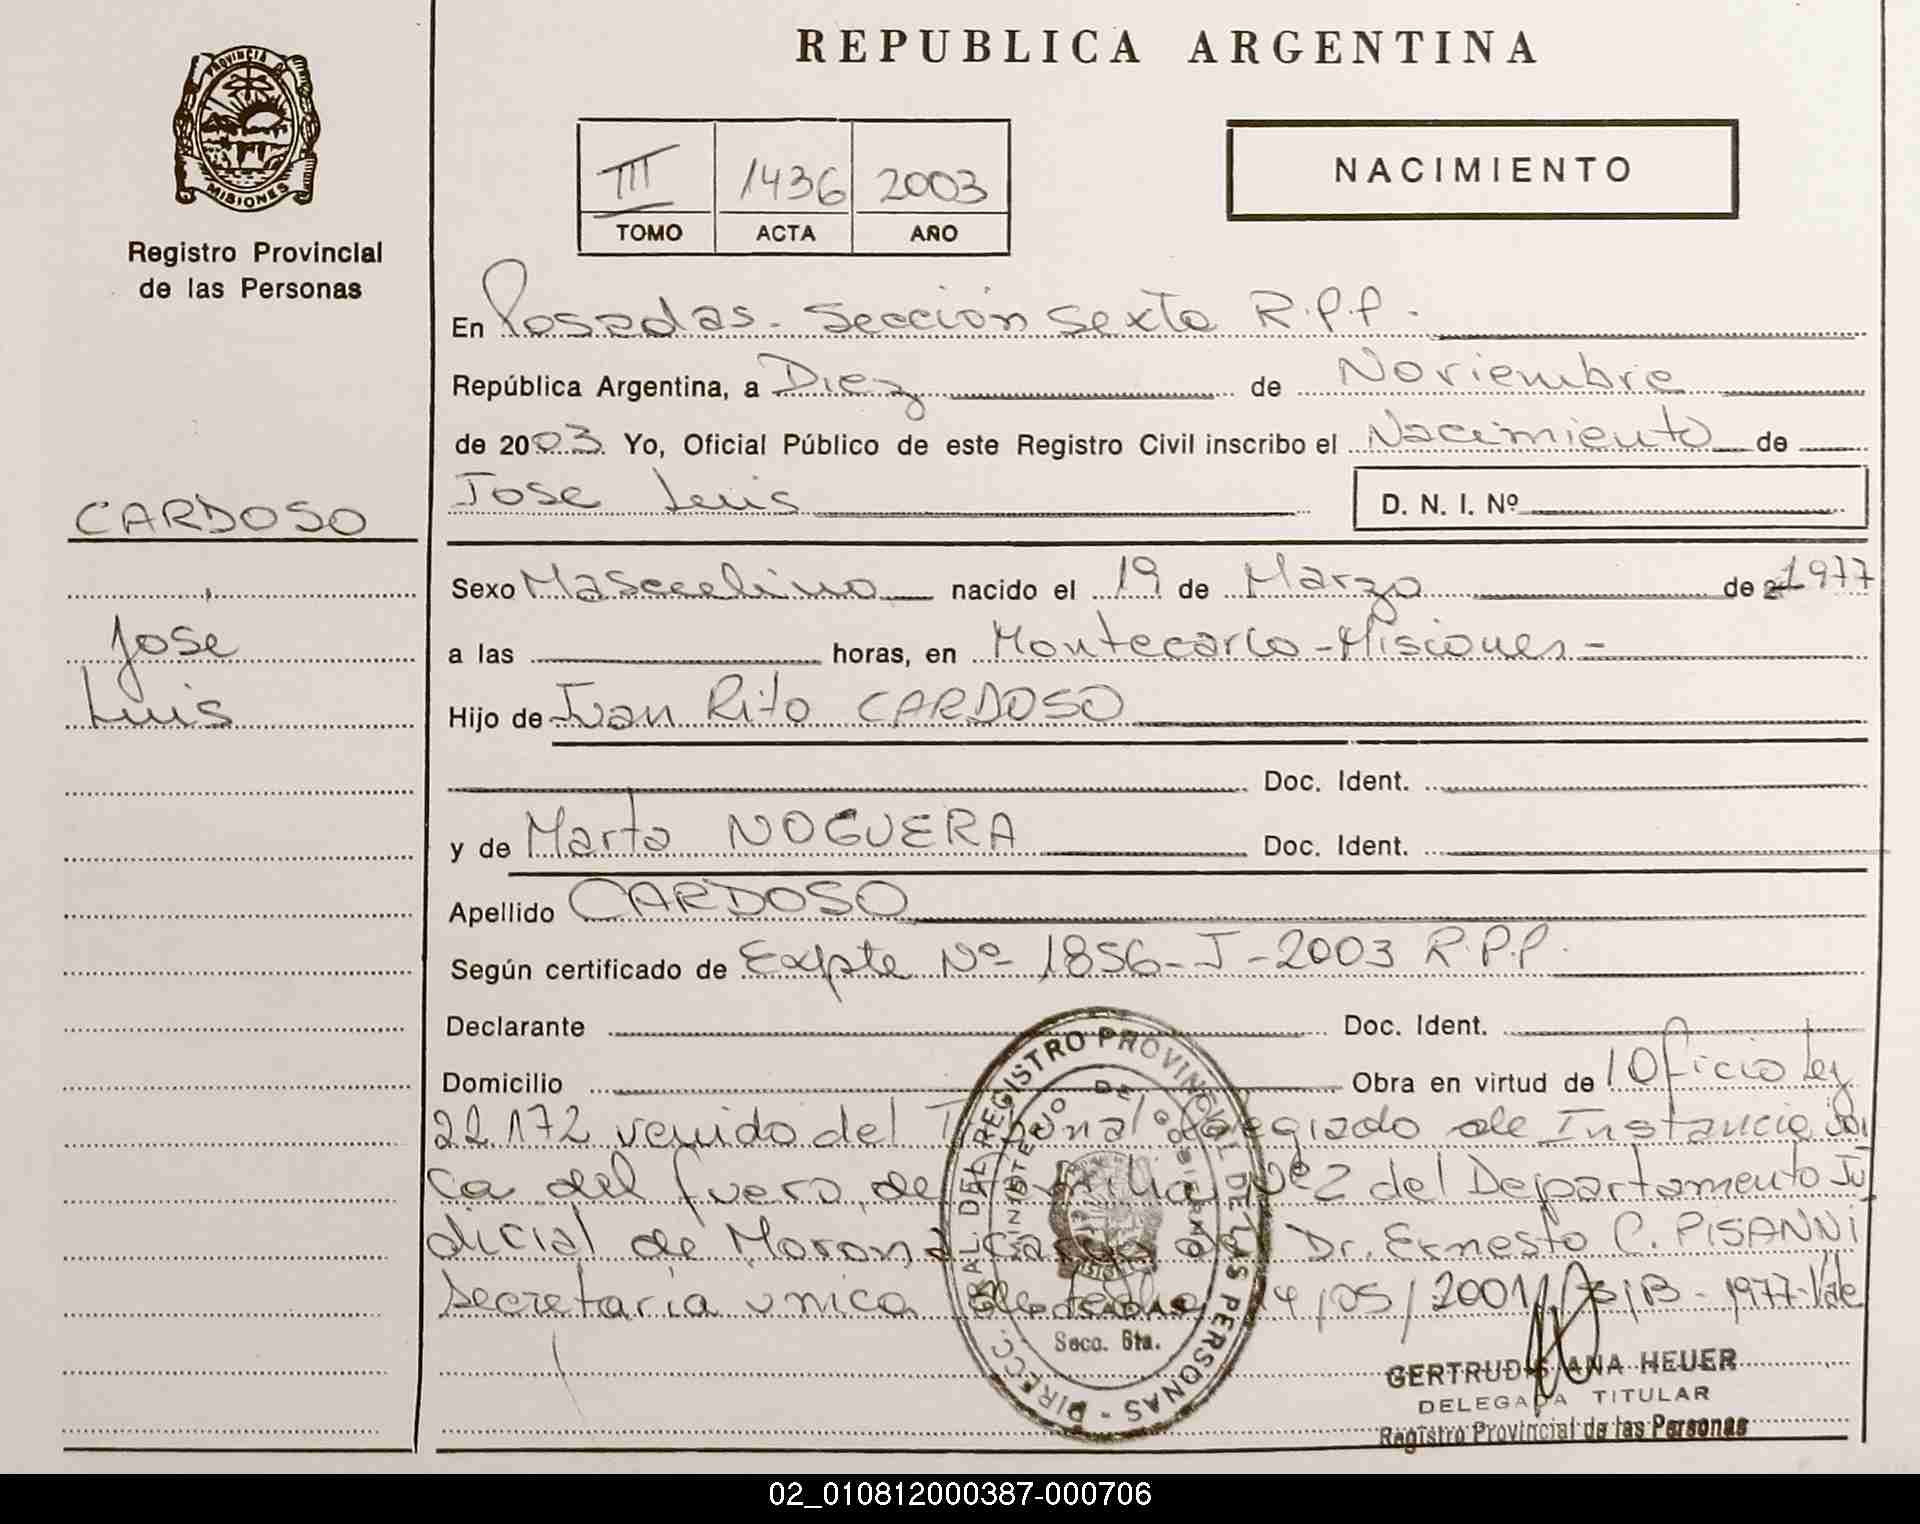 REPUBLICA ARGENTINA
PROVINCIA DE
MISIONES
Registro Provincial
de las Personas
III 1436 2003
TOMO ACTA AÑO
NACIMIENTO
En Posadas - Sección Sexta R.P.P.
República Argentina, a Diez de Noviembre
de 2003 Yo, Oficial Público de este Registro Civil inscribo el Nacimiento de
Jose Luis D. N. I. Nº
CARDOSO
José
Luis
Sexo Masculino nacido el 19 de Marzo de 1977
a las horas, en Montecarlo - Misiones -
Hijo de Juan Rito CARDOSO
Doc. Ident.
y de Marta NOGUERA Doc. Ident.
Apellido CARDOSO
Según certificado de Expte Nº 1856 - J - 2003 R.P.P.
Declarante Doc. Ident.
Domicilio Obra en virtud de Oficio Ley
22.172 venido del Tribunal Colegiado de Instancia úni
ca del fuero de familia Nº 2 del Departamento Ju
dicial de Moron a cargo del Dr. Ernesto C. PISANNI
Secretaría unica de fecha 14/05/2001 - 1977 - Vale
DIRECC. GRAL. DEL REGISTRO PROVINCIAL DE LAS PERSONAS -
MINISTERIO DE GOBIERNO
POSADAS
Secc. 6ta.
GERTRUDIS ANA HEUER
DELEGADA TITULAR
Registro Provincial de las Personas
02_010812000387-000706